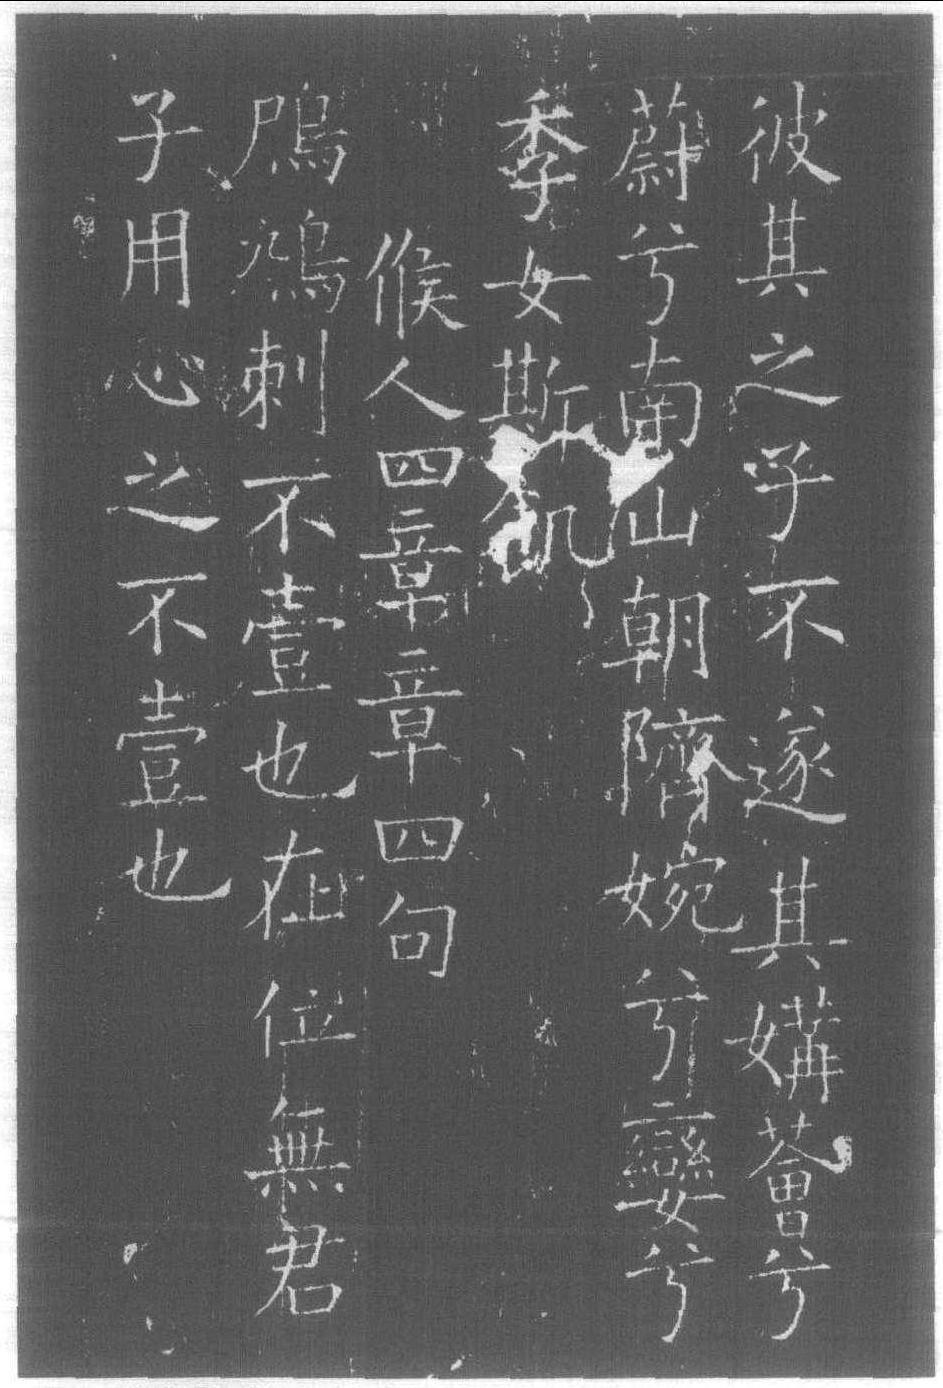 彼其之子不遂其媾薈兮
蔚兮南山朝隮婉兮孌兮
季女斯飢
候人四章章四句
鳲鳩刺不壹也在位無君
子用心之不壹也